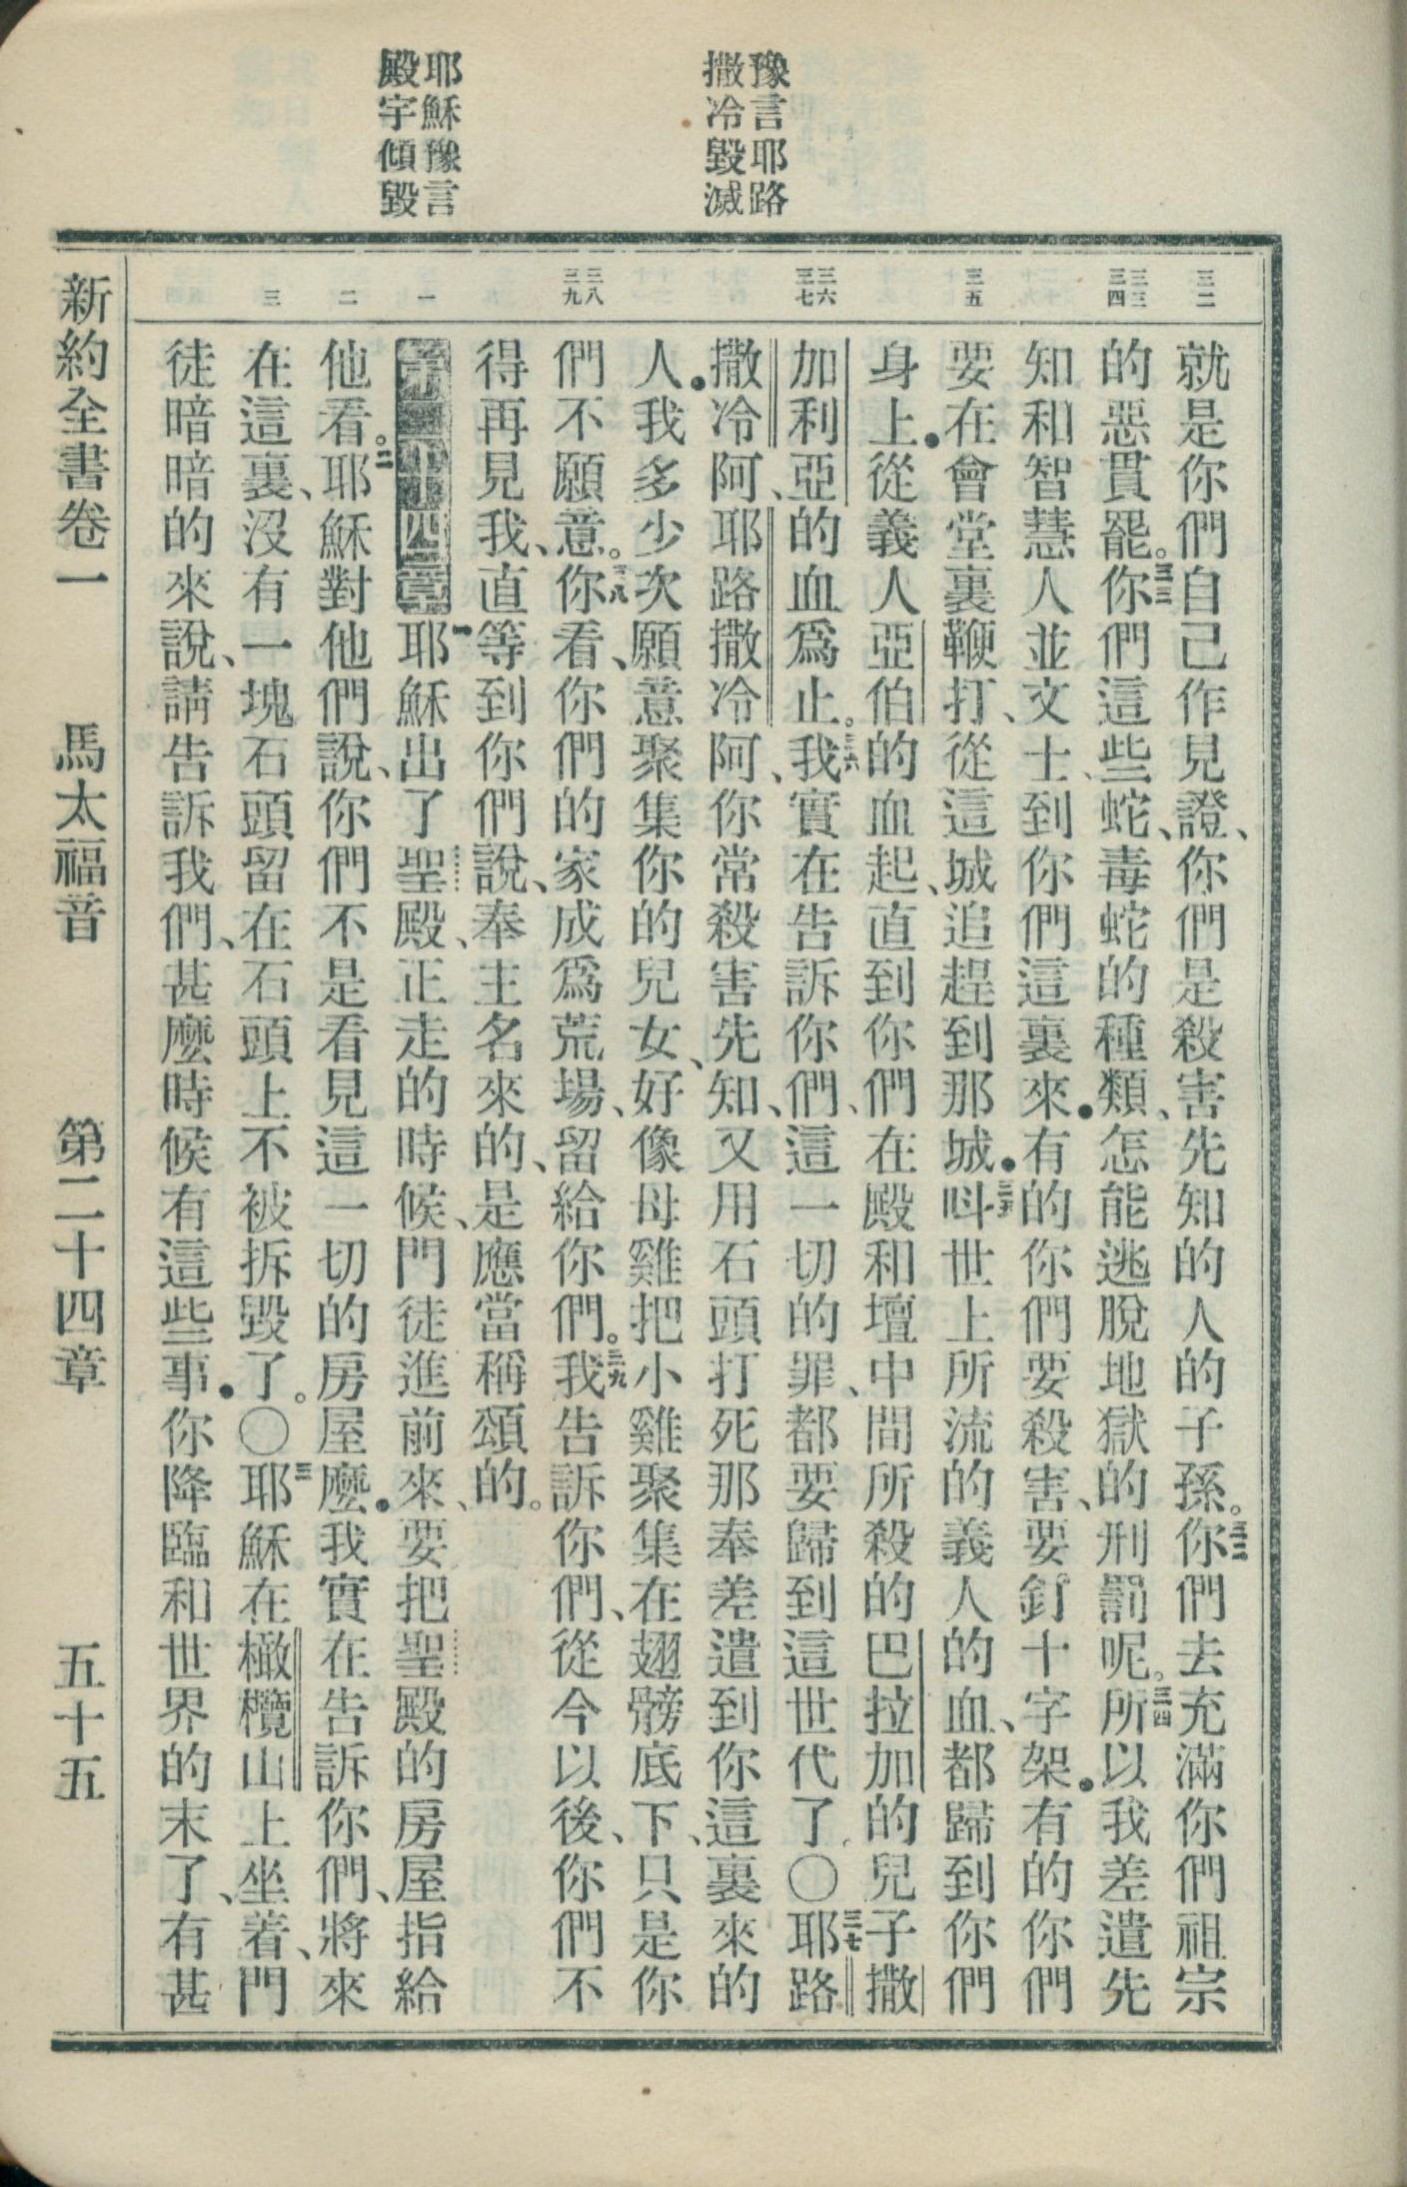 豫言耶路
撒冷毀滅
耶穌豫言
殿宇傾毀
三二
三三
三四
三五
三六
三七
三八
三九
一
二
三
就是你們自己作見證、你們是殺害先知的人的子孫。三二你們去充滿你們祖宗
的惡貫罷。三三你們這些蛇、毒蛇的種類、怎能逃脫地獄的刑罰呢。三四所以我差遣先
知和智慧人並文士、到你們這裏來．有的你們要殺害、要釘十字架．有的你們
要在會堂裏鞭打、從這城追趕到那城．三五呌世上所流的義人的血、都歸到你們
身上．從義人亞伯的血起、直到你們在殿和壇中間所殺的巴拉加的兒子撒
加利亞的血爲止。三六我實在告訴你們、這一切的罪、都要歸到這世代了。〇三七耶路
撒冷阿、耶路撒冷阿、你常殺害先知、又用石頭打死那奉差遣到你這裏來的
人．我多少次願意聚集你的兒女、好像母雞把小雞聚集在翅髈底下、只是你
們不願意。三八你看、你們的家成爲荒場、留給你們。三九我告訴你們、從今以後、你們不
得再見我、直等到你們說、奉主名來的、是應當稱頌的。
第二十四章一耶穌出了聖殿、正走的時候、門徒進前來、要把聖殿的房屋指給
他看。二耶穌對他們說、你們不是看見這一切的房屋麼．我實在告訴你們、將來
在這裏、沒有一塊石頭留在石頭上不被拆毀了。〇三耶穌在橄欖山上坐着、門
徒暗暗的來說、請告訴我們、甚麼時候有這些事．你降臨和世界的末了、有甚
新約全書卷一 馬太福音 第二十四章 五十五